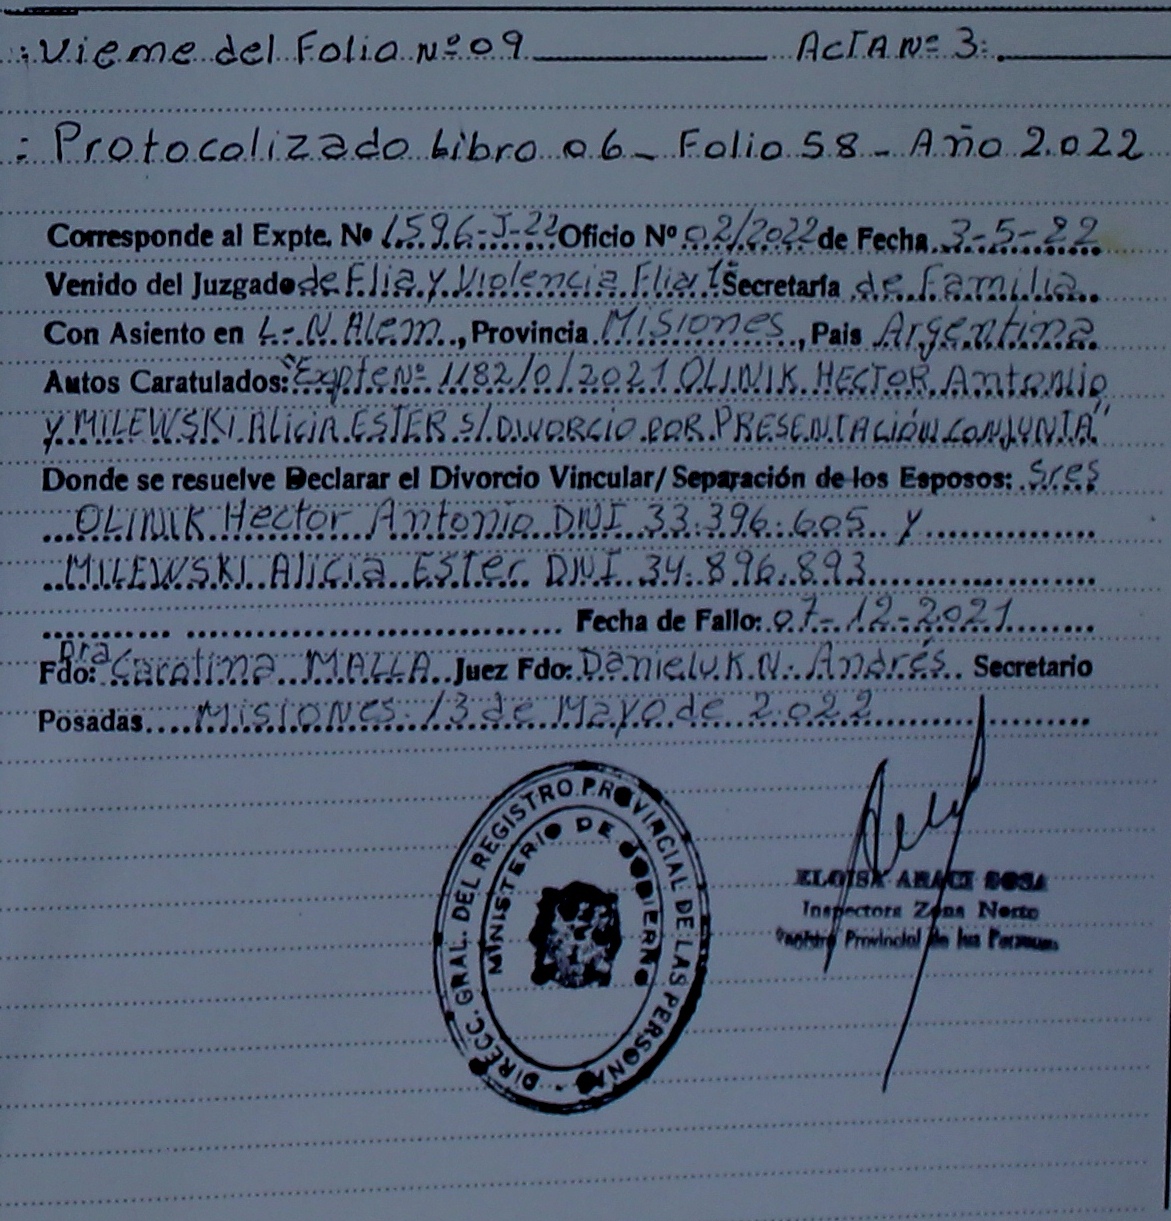 : Vieme del Folio Nº 09 ACTA Nº 3:
: Protocolizado Libro 06_ Folio 58 - Año 2.022
Corresponde al Expte. Nº 1.596-J-22 Oficio Nº 02/2022 de Fecha 3-5-22
Venido del Juzgado de Flia y Violencia Flia 1ª Secretaría de Familia
Con Asiento en L.N. Alem, Provincia Misiones, Pais Argentina
Autos Caratulados: "Expte Nº 1182/0/2021 OLINIK HECTOR Antonio
y MILEWSKI Alicia ESTER S/DIVORCIO POR PRESENTACIÓN CONJUNTA"
Donde se resuelve Declarar el Divorcio Vincular/Separación de los Esposos: Sres
OLINIK Hector Antonio DNI 33.396.605 y
MILEWSKI Alicia Ester DNI 34.896.893
Fecha de Fallo: 07-12-2021
Fdo: Dra Carolina MALLA Juez Fdo: Danieluk N. Andrés Secretario
Posadas Misiones 13 de Mayo de 2.022
DIRECC. GRAL. DEL REGISTRO PROVINCIAL DE LAS PERSONAS
MINISTERIO DE GOBIERNO
ELOISA ARACI SOSA
Inspectora Zona Norte
Registro Provincial de las Personas